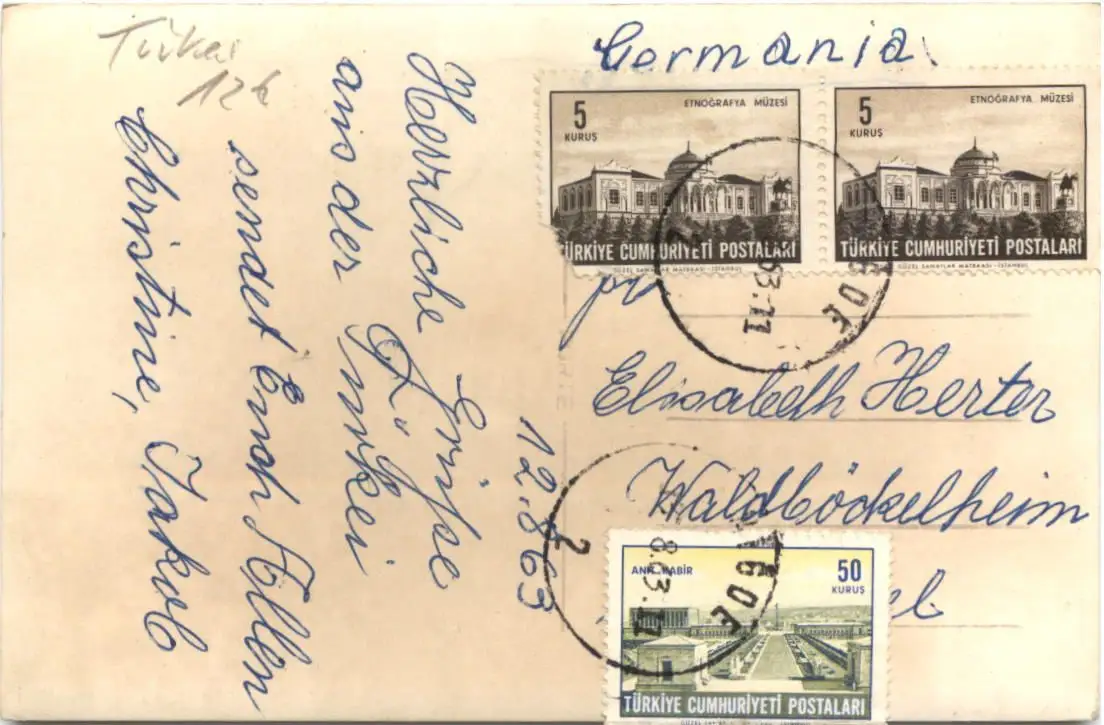 Germania
Türkei
126
12.8.63
Herzliche Grüße
aus der Türkei
sendet Euch Allen
Christine, Jakob
5
KURUŞ
ETNOĞRAFYA MÜZESİ
TÜRKİYE CUMHURİYETİ POSTALARI
GÜZEL SANATLAR MATBAASI - İSTANBUL
5
KURUŞ
ETNOĞRAFYA MÜZESİ
TÜRKİYE CUMHURİYETİ POSTALARI
GÜZEL SANATLAR MATBAASI - İSTANBUL
Elisabeth Herter
Waldböckelheim
ANIT KABİR
50
KURUŞ
TÜRKİYE CUMHURİYETİ POSTALARI